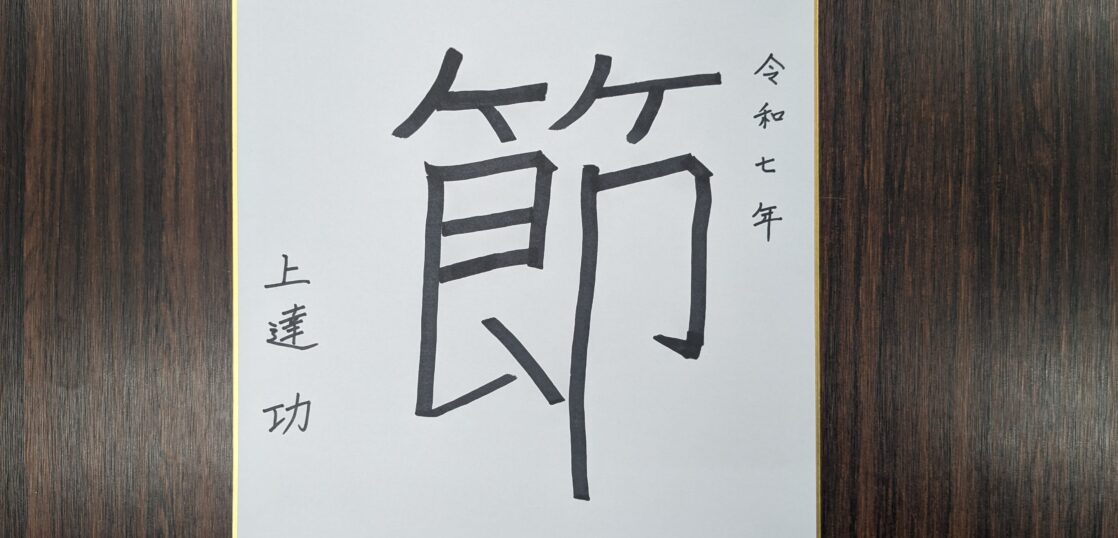 令和七年
節
上達 功